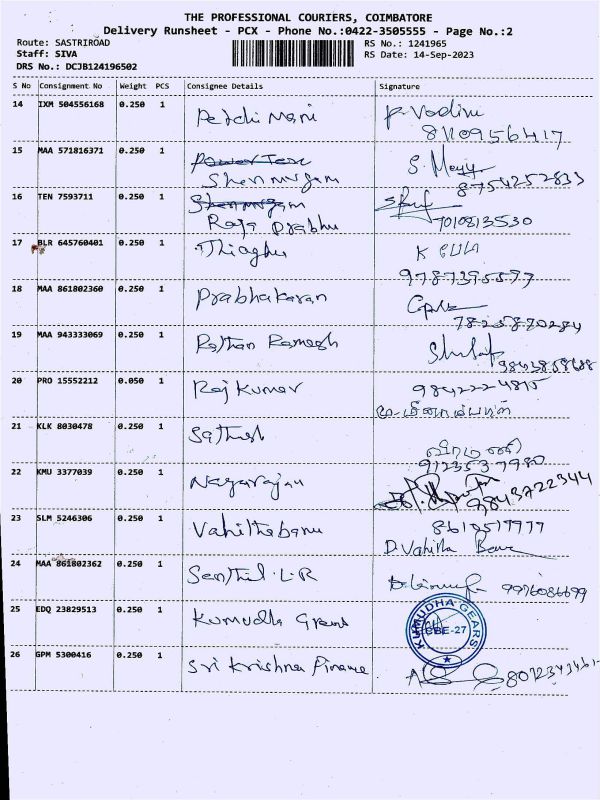 THE PROFESSIONAL COURIERS, COIMBATORE
Delivery Runsheet - PCX - Phone No.:0422-3505555 - Page No.:2
Route: SASTRIROAD
Staff: SIVA
DRS No.: DCJB124196502
RS No.: 1241965
RS Date: 14-Sep-2023
S No Consignment No Weight PCS Consignee Details Signature
14 IXM 504556168 0.250 1 Petchi Mani P. Vadivu
8110956417
15 MAA 571816371 0.250 1
Shenmugam 8754252833
16 TEN 7593711 0.250 1 Shenmugam
Raja Prabhu 7010813530
17 BLR 645760401 0.250 1 Thiaghu K
9787395597
18 MAA 861802360 0.250 1 Prabhakaran
19 MAA 943333069 0.250 1 Rathan Ramesh
20 PRO 15552212 0.050 1 Raj Kumar 9842224815
21 KLK 8030478 0.250 1 Sathish
9123537980
22 KMU 3377039 0.250 1 Nagarajan 9843722344
23 SLM 5246306 0.250 1 Vahithabanu
D. Vahitha Banu
24 MAA 861802362 0.250 1 Senthil. L.R 9976086699
25 EDQ 23829513 0.250 1 Kumudha KUMUDHA GEARS
CBE-27
26 GPM 5300416 0.250 1 Sri Krishna Finance